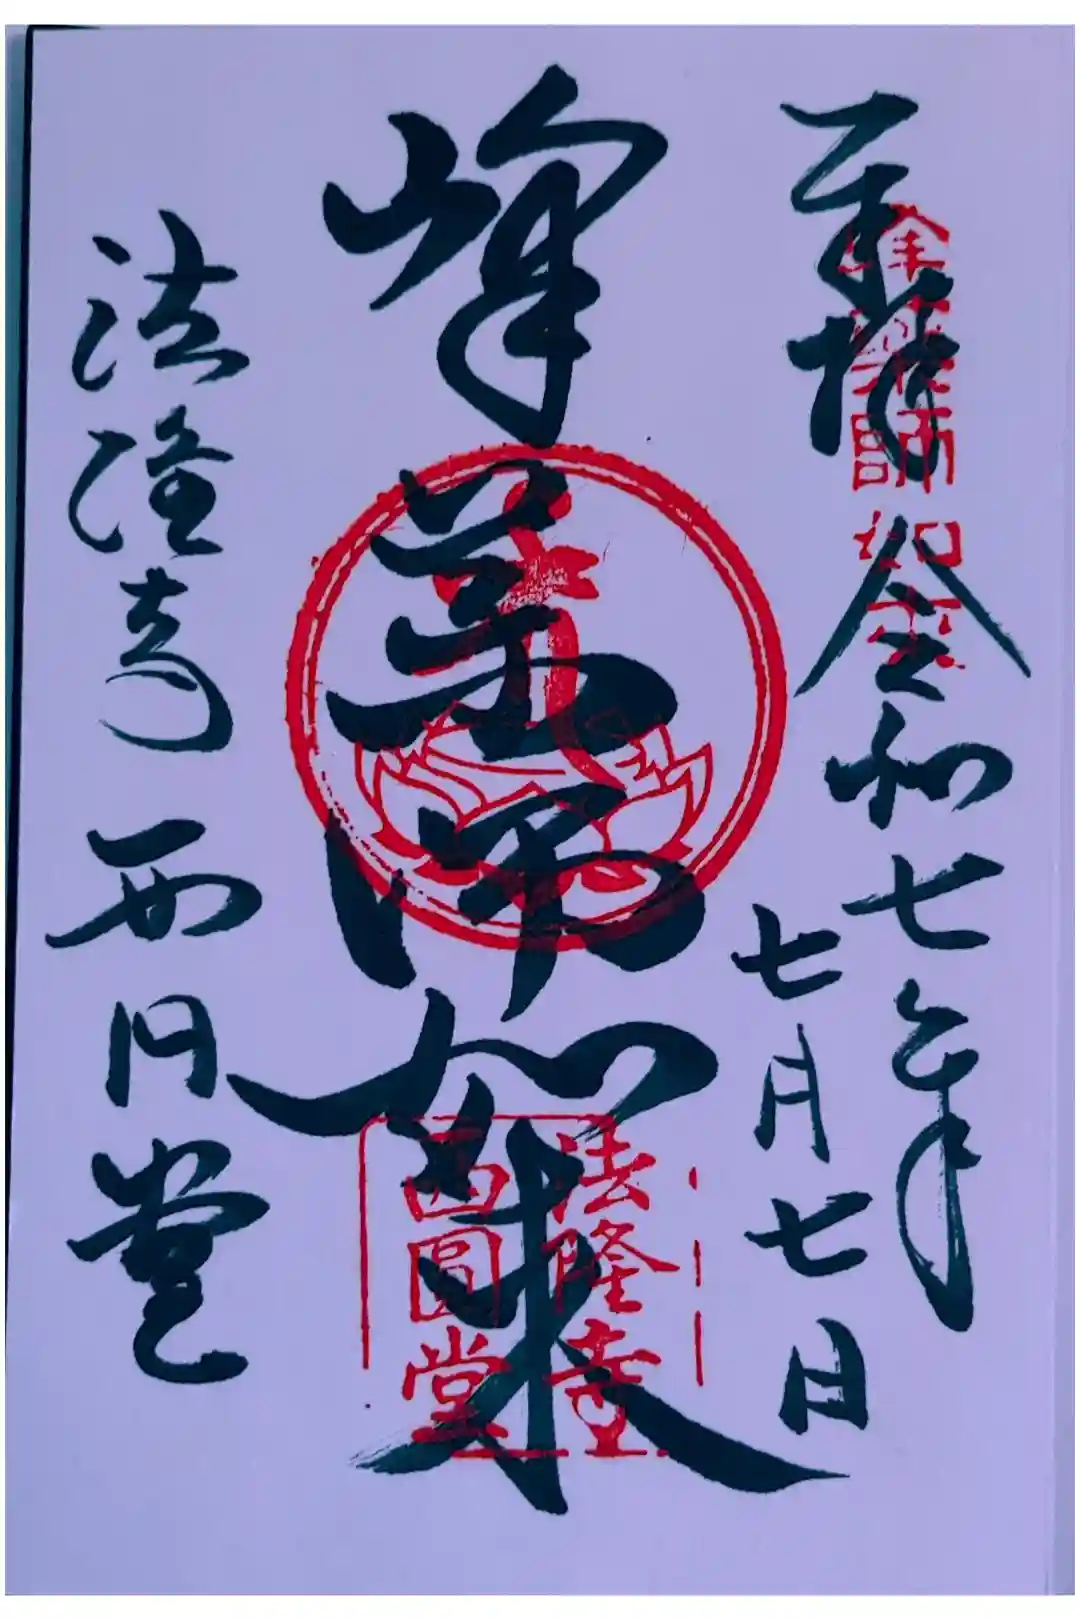 奉拝
令和七年
七月七日
峰薬師如来
法隆寺 西円堂
峯薬師如来
法隆寺
西圓堂